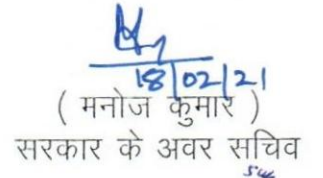 18/02/21
( मनोज कुमार )
सरकार के अवर सचिव